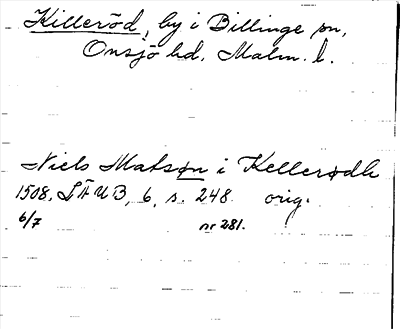 Killeröd, by i Billinge sn,
Onsjö hd. Malm. l.
Niels Matsøn i Kellerødh
1508. LÄUB, 6, s. 248 orig.
6/7 nr 281.